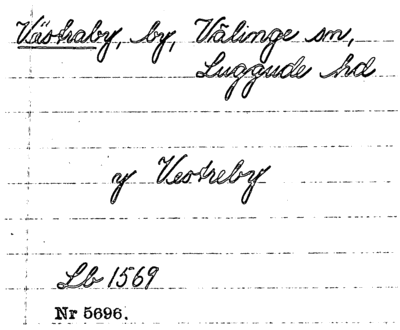 Västraby, by, Välinge sn,
Luggude hd
y Vestreby
Lb 1569
Nr 5696.